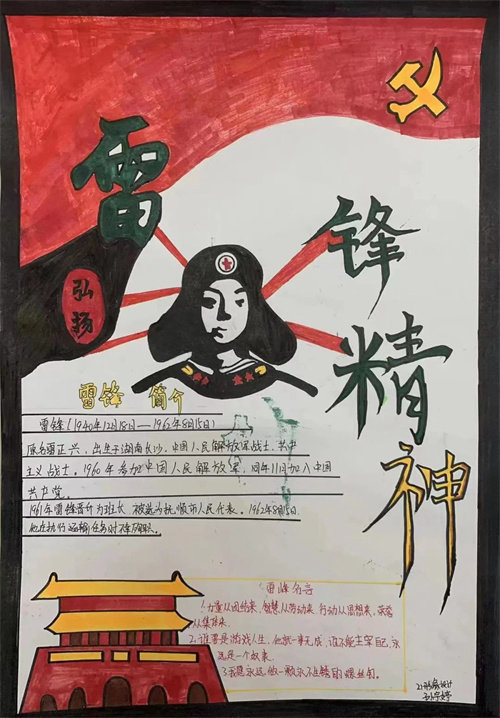 雷
锋
精
神
弘
扬
雷锋 简介
雷锋(1940年12月18日—1962年8月15日)
原名雷正兴,出生于湖南长沙,中国人民解放军战士,共产
主义战士。1960年参加中国人民解放军,同年11月加入中国
共产党。
1961年雷锋晋升为班长,被选为抚顺市人民代表。1962年8月15日,
他在执行运输任务时不幸殉职。
雷锋名言
1.力量从团结来,智慧从劳动来,行动从思想来,荣誉
从集体来。
2.谁要是游戏人生,他就一事无成,谁不能主宰自己,永
远是一个奴隶。
3.我愿永远做一颗永不生锈的螺丝钉。